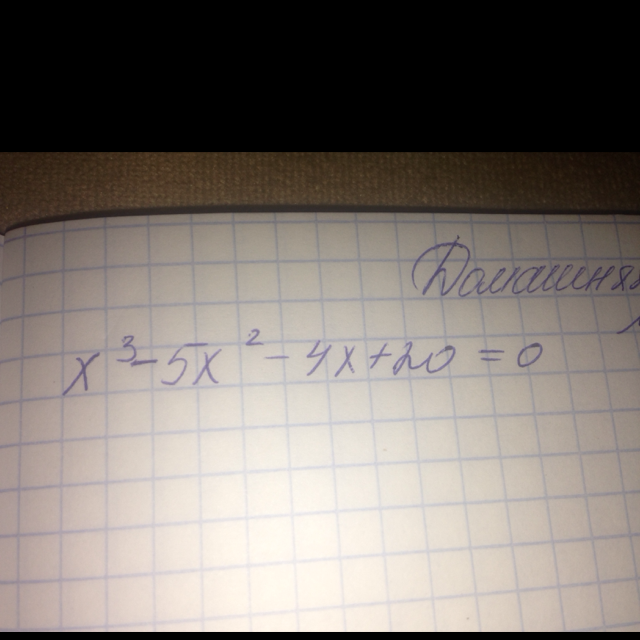 Домашняя
x³-5x²-4x+20=0